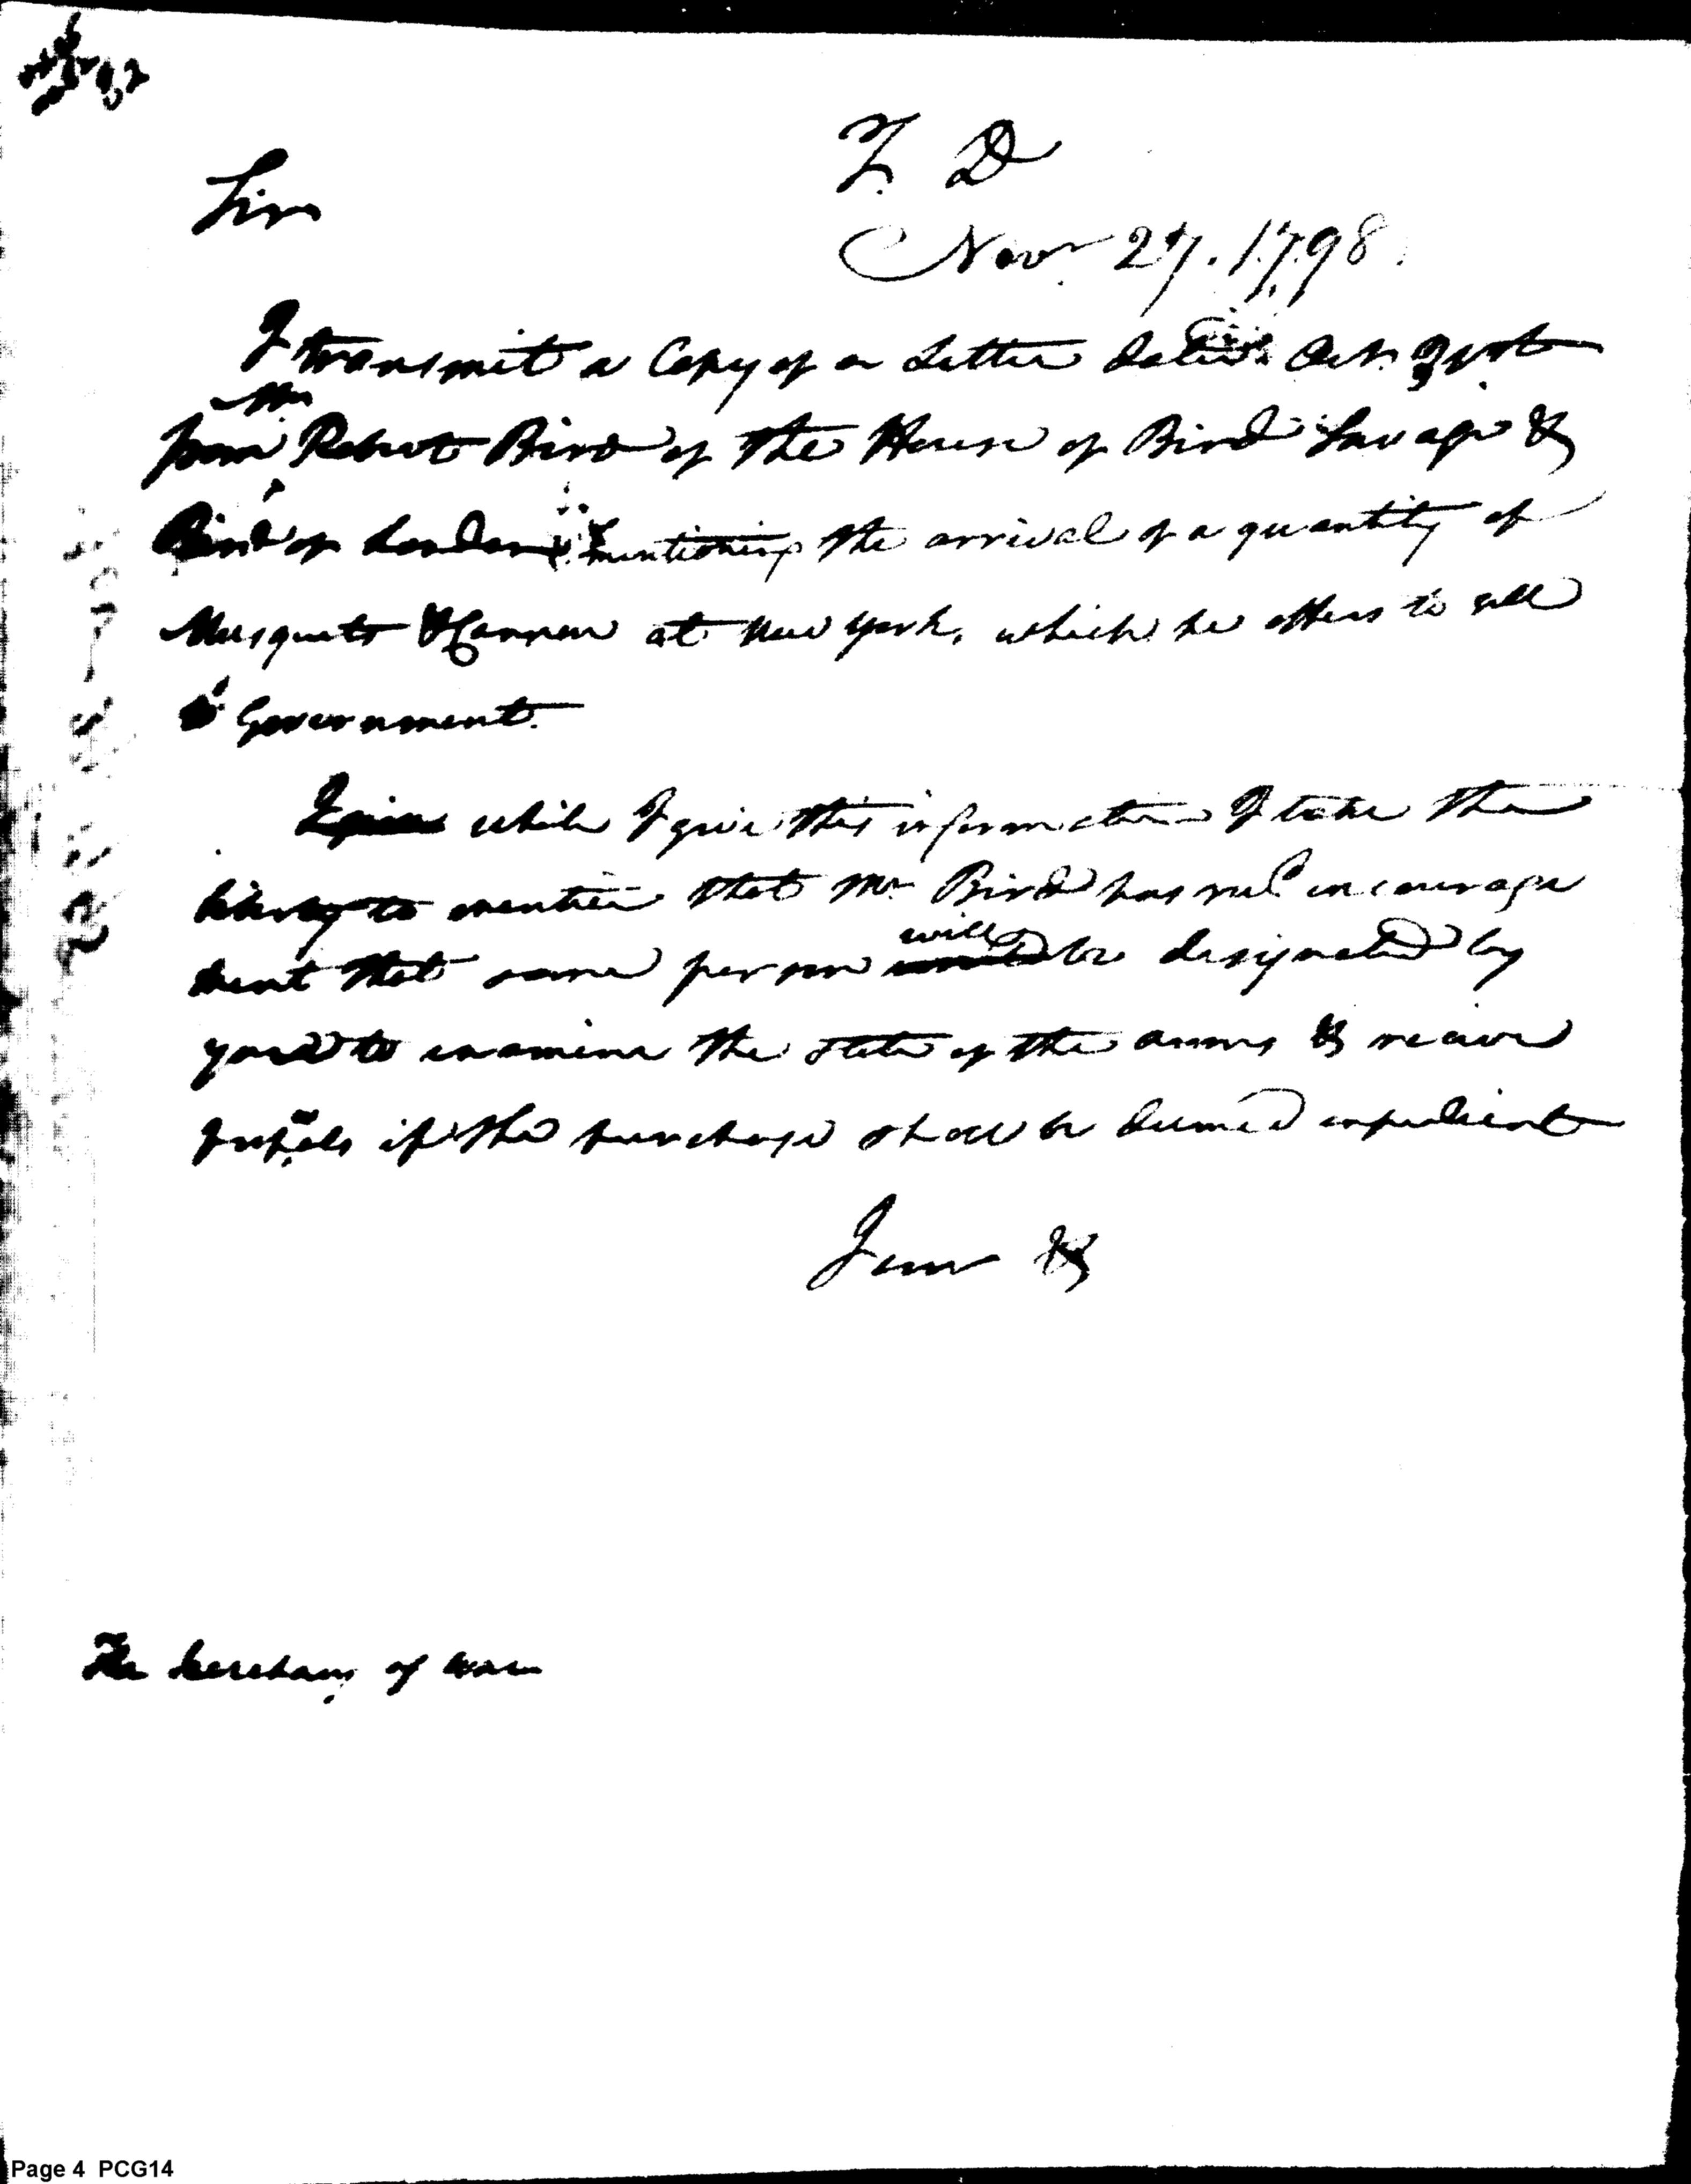 T. D
Sir
Novr 27. 1798.
I transmit a Copy of a Letter dated Oct. 31st
Mr
from Robert Bird of the House of Bird Savage &
Bird of London mentioning the arrival of a quantity of
Musquets & Cannon at New York, which he offers to sell
to Government.
while I give this information I take the
liberty to mention that Mr Bird has recd encourage
ment that some person will be designated by
you to examine the state of the arms & receive
if the purchase shall be deemed expedient
I am &
The Secretary of War
Page 4 PCG14